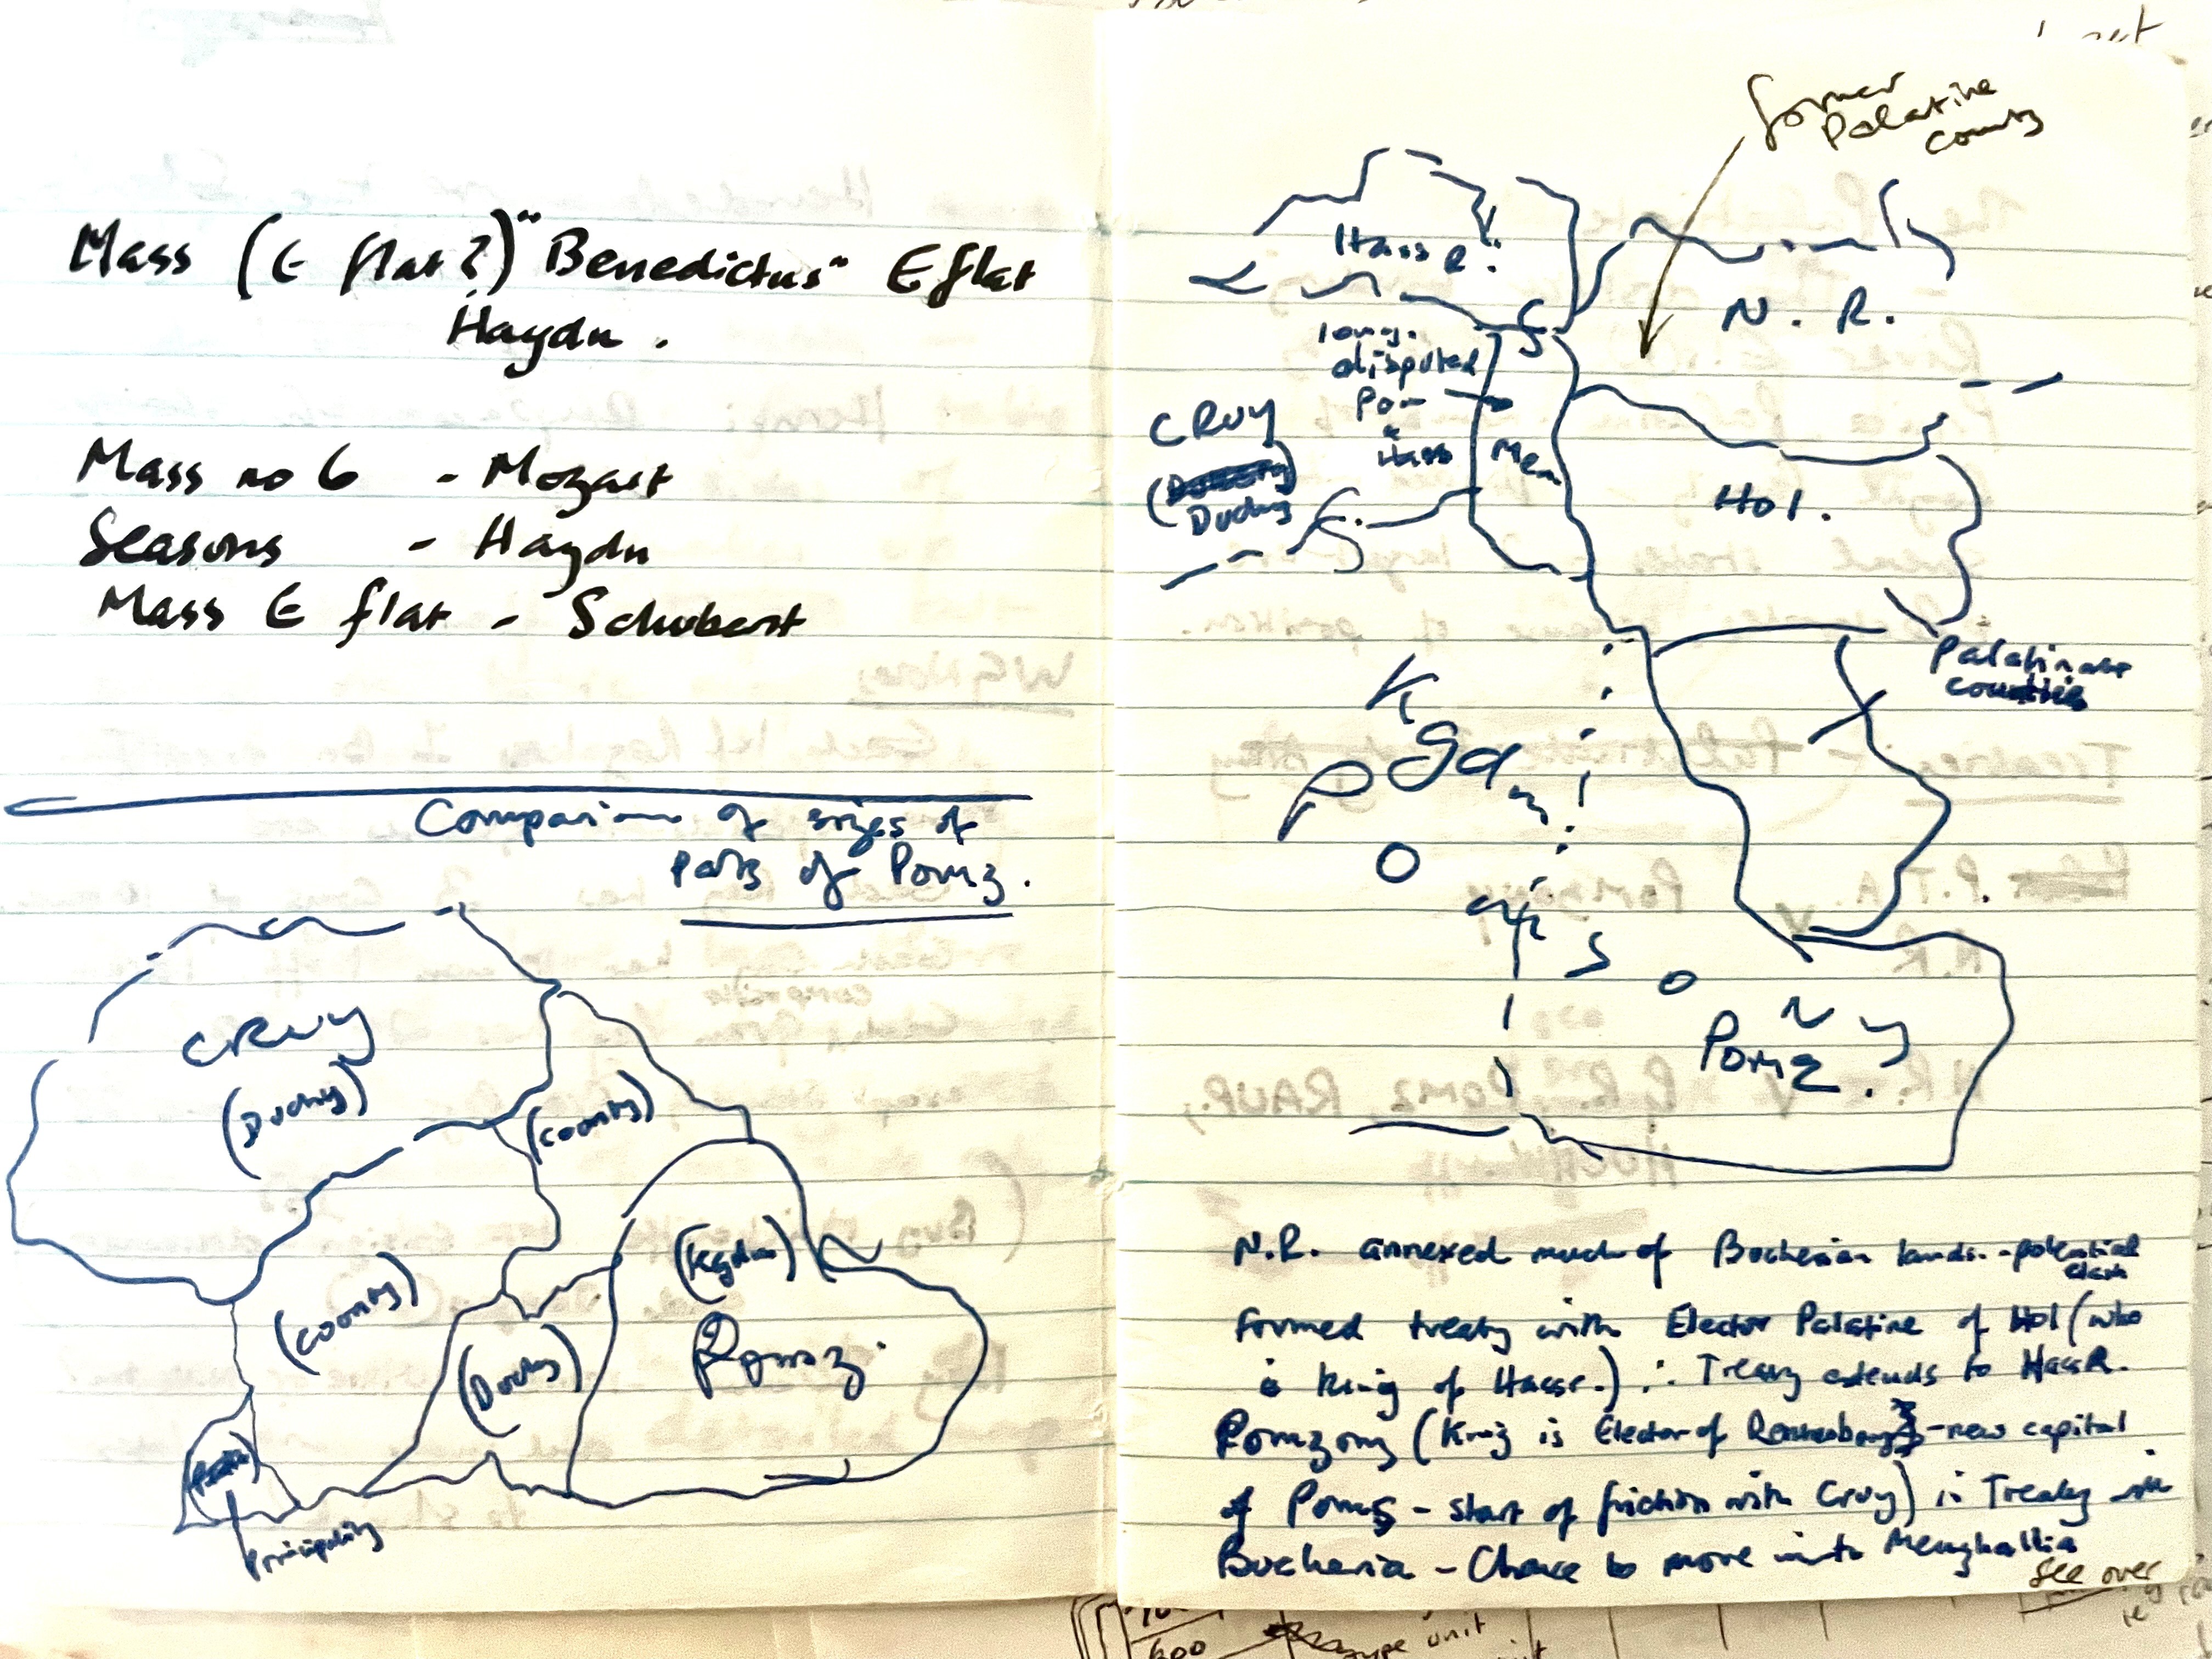 Mass (E flat?) "Benedictus" E flat
Haydn.
Mass no 6 - Mozart
Seasons - Haydn
Mass E flat - Schubert
Comparison of sizes of
parts of Pomz.
CRUY
(Duchy)
(County)
(County)
(Duchy)
(Kgdm)
Pomz.
Principality
former
Palatine
county
Hass R.
N. R.
long
disputed
Pom
&
Hass
CRUY
Duchy
Men
Hol.
Palatinate
counties
Kgdm
of
POMZONY
Pomz.
N.R. annexed much of Bucherian lands - potential
clash
Formed treaty with Elector Palatine of Hol (who
is King of Hassr.) ∴ Treaty extends to HassR.
Pomzony (King is Elector of - new capital
of Pomz - start of friction with Cruy) in Treaty with
Bucheria - Chance to move into Menghallia
see over
600
type unit